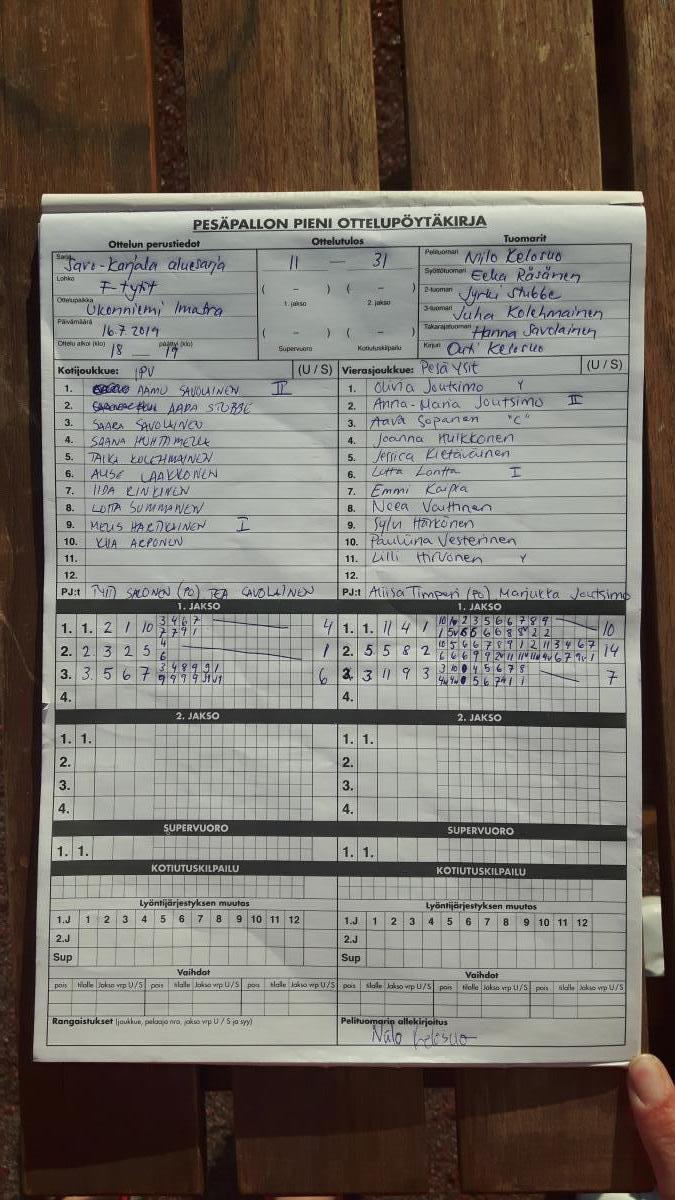 PESÄPALLON PIENI OTTELUPÖYTÄKIRJA
Ottelun perustiedot Ottelutulos Tuomarit
Sarja Savo-Karjala aluesarja
Lohko F-tytöt
Ottelupaikka Ukonniemi Imatra
Päivämäärä 16.7.2019
Ottelu alkoi (klo) päättyi (klo)
18 — 19
11 — 31
( – ) ( – )
1. jakso 2. jakso
( – ) ( – )
Supervuoro Kotiutuskilpailu
Pelituomari Niilo Kelosuo
Syöttötuomari Eeka Räsänen
2-tuomari Jyrki Stubbe
3-tuomari Juha Kolehmainen
Takarajatuomari Hanna Savolainen
Kirjuri Outi Kelosuo
Kotijoukkue: IPV (U / S)
1. AAMU SAVOLAINEN II
2. AADA STUBBE
3. SAARA SAVOLAINEN
4. SAANA
5. TAIKA KOLEHMAINEN
6. LAAKKONEN
7. IIDA RINKINEN
8. LOTTA SUMMANEN
9. HARTIKAINEN I
10. KIIA ARPONEN
11.
12.
PJ:t SALONEN (PO) TEA SAVOLAINEN
Vierasjoukkue: Pesä Ysit (U / S)
1. Olivia Joutsimo Y
2. Anna-Maria Joutsimo II
3. Aava Sopanen "C"
4. Joanna Huikkonen
5. Jessica Kietäväinen
6. Lotta Lontta I
7. Emmi Karpa
8. Neea Vauhnen
9. Sylvi Härkönen
10. Pauliina Vesterinen
11. Lilli Hirvonen Y
12.
PJ:t Aliisa Timperi (PO) Marjukka Joutsimo
1. JAKSO
1. 1. 2 1 10 3 4 6 7 4
7 7 9 1
2. 2. 3 2 5 4 1
6
3. 3. 5 6 7 3 4 8 9 9 1 6
4.
1. JAKSO
1. 1. 11 4 1 10
2. 5 5 8 2 14
3. 3 11 9 3 7
4.
2. JAKSO
1. 1.
2.
3.
4.
2. JAKSO
1. 1.
2.
3.
4.
SUPERVUORO
1. 1.
SUPERVUORO
1. 1.
KOTIUTUSKILPAILU
KOTIUTUSKILPAILU
Lyöntijärjestyksen muutos
1.J 1 2 3 4 5 6 7 8 9 10 11 12
2.J
Sup
Lyöntijärjestyksen muutos
1.J 1 2 3 4 5 6 7 8 9 10 11 12
2.J
Sup
Vaihdot
pois tilalle Jakso vrp U / S pois tilalle Jakso vrp U / S pois tilalle Jakso vrp U / S
Vaihdot
pois tilalle Jakso vrp U / S pois tilalle Jakso vrp U / S pois tilalle Jakso vrp U / S
Rangaistukset (joukkue, pelaaja nro, jakso vrp U / S ja syy)
Pelituomarin allekirjoitus
Niilo Kelosuo